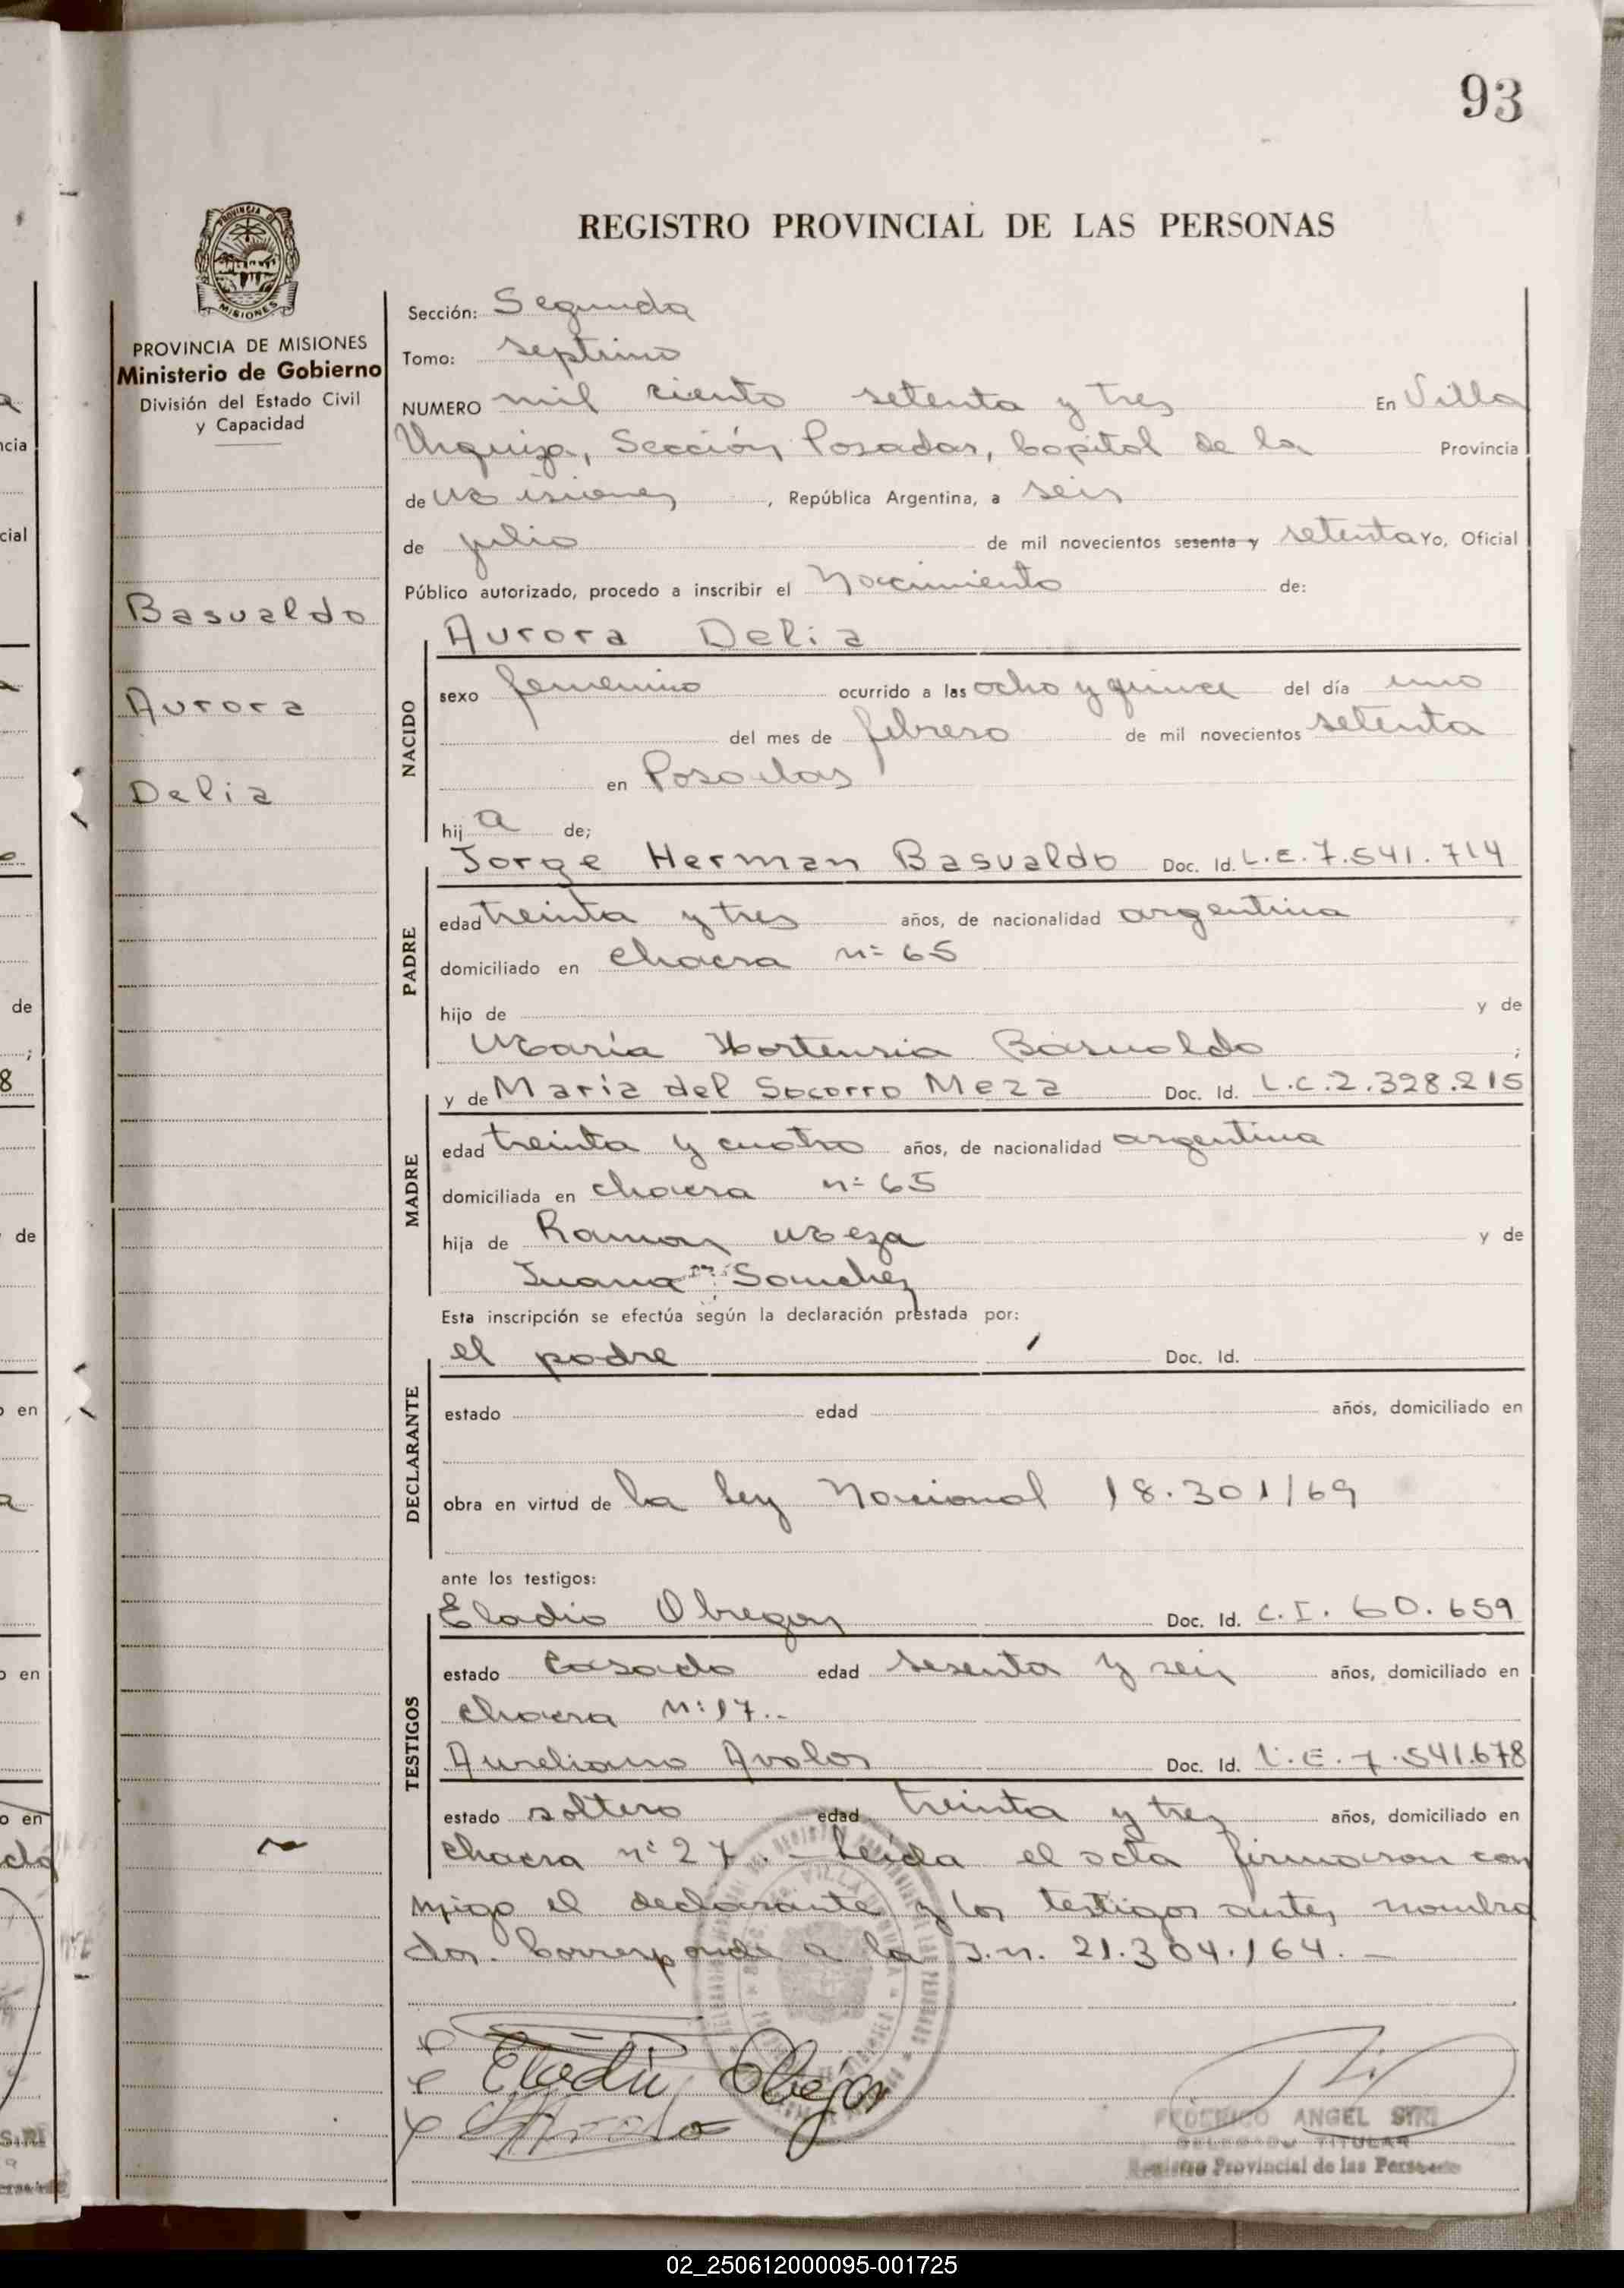 93
REGISTRO PROVINCIAL DE LAS PERSONAS
PROVINCIA DE MISIONES
MISIONES
PROVINCIA DE MISIONES
Ministerio de Gobierno
División del Estado Civil
y Capacidad
Basualdo
Aurora
Delia
Sección: Segunda
Tomo: septimo
NUMERO mil ciento setenta y tres En Villa
Urquiza, Sección Posadas, Capital de la Provincia
de Misiones, República Argentina, a seis
de julio de mil novecientos sesenta y setenta Yo, Oficial
Público autorizado, procedo a inscribir el Nacimiento de:
NACIDO
Aurora Delia
sexo femenino ocurrido a las ocho y quince del día uno
del mes de febrero de mil novecientos setenta
en Posadas
hij a de;
PADRE
Jorge Herman Basualdo Doc. Id. L.E. 7.541.714
edad treinta y tres años, de nacionalidad argentina
domiciliado en chacra nº 65
hijo de y de
María Hortensia Basualdo ;
MADRE
y de María del Socorro Meza Doc. Id. L.C.2.328.215
edad treinta y cuatro años, de nacionalidad argentina
domiciliada en chacra nº 65
hija de Ramon Meza y de
Juana Sanchez
Esta inscripción se efectúa según la declaración prestada por:
DECLARANTE
el padre Doc. Id.
estado edad años, domiciliado en
obra en virtud de la ley Nacional 18.301/69
ante los testigos:
TESTIGOS
Eladio Obregon Doc. Id. C.I. 60.659
estado casado edad sesenta y seis años, domiciliado en
chacra nº 17.-
Aureliano Avalos Doc. Id. L.E. 7.541.678
estado soltero edad treinta y tres años, domiciliado en
chacra nº 27.- Leída el acta firmaron con
migo el declarante y los testigos antes nombra
dos. Corresponde a la I.n. 21.304.164.-
Eladio
FEDERICO ANGEL SIRI
DELEGADO TITULAR
Registro Provincial de las Personas
02_250612000095-001725